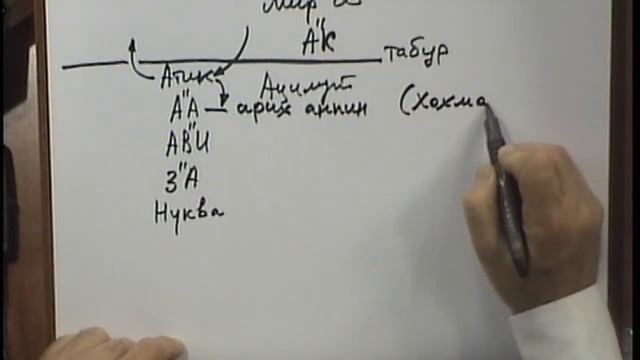 Мир
А"К
табур
Атик Ацилут
А"А — арих анпин (Хохма
АВ"И
З"А
Нуква